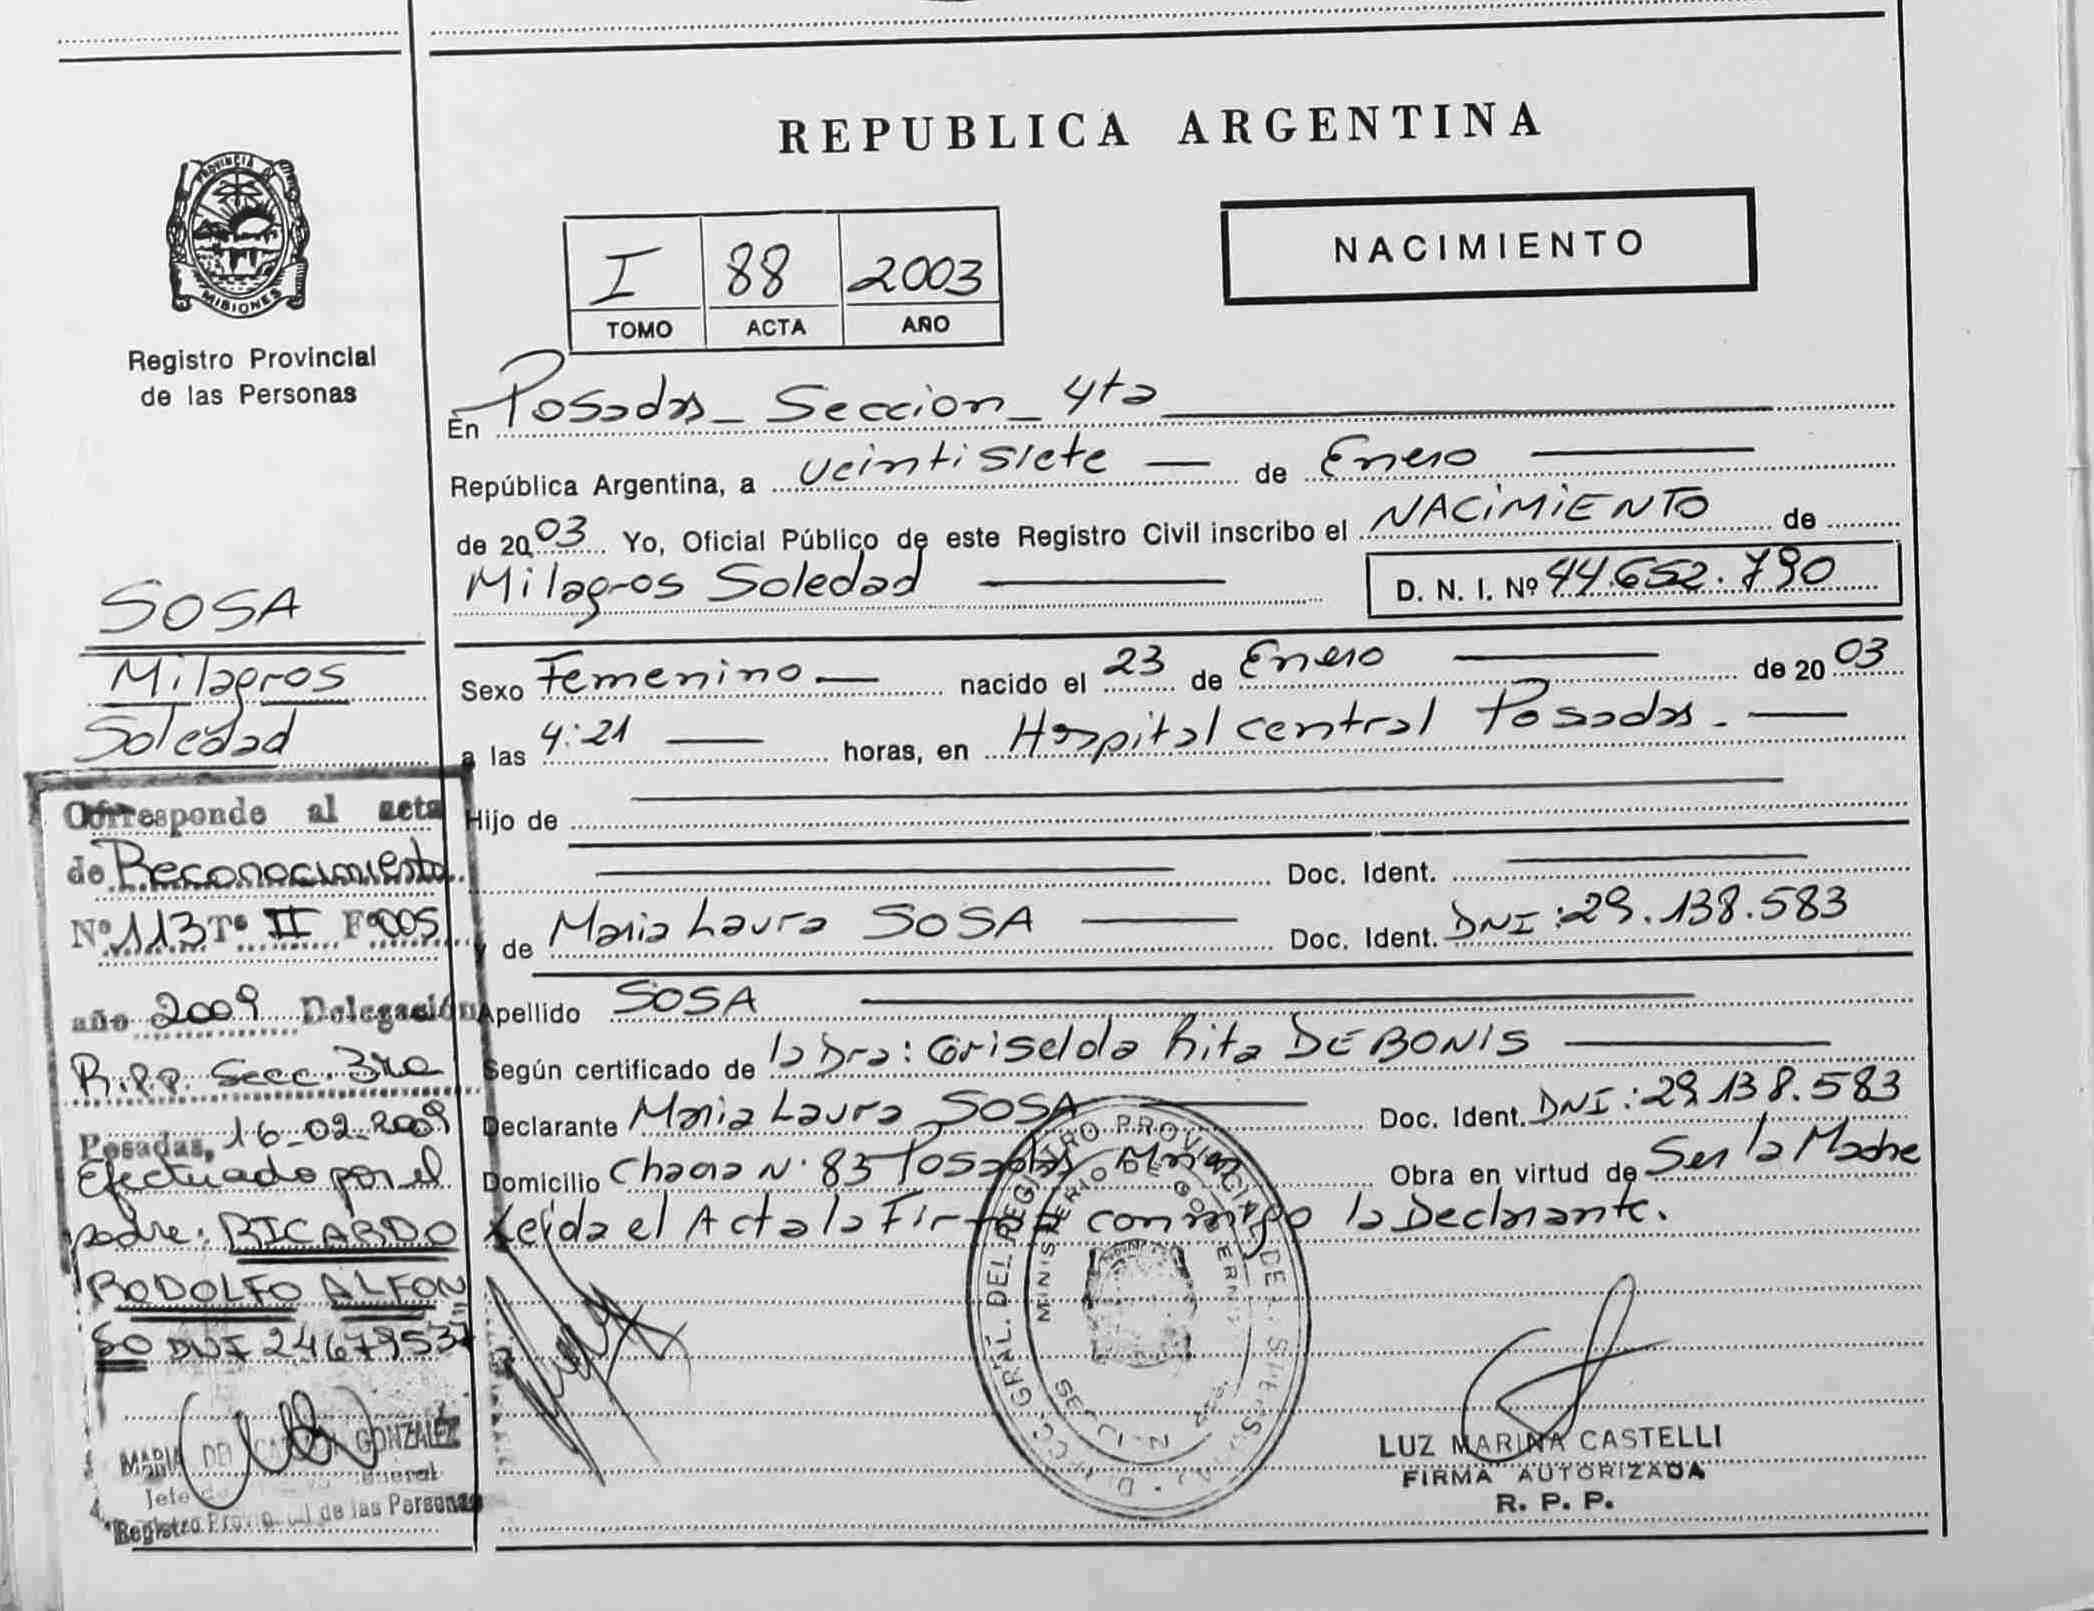 REPUBLICA ARGENTINA
PROVINCIA DE
MISIONES
Registro Provincial
de las Personas
I 88 2003
TOMO ACTA AÑO
NACIMIENTO
En Posadas - Seccion - 4ta
República Argentina, a veintisiete de Enero
de 2003 Yo, Oficial Público de este Registro Civil inscribo el NACIMIENTO de
Milagros Soledad D. N. I. Nº 44.652.790
Sexo Femenino nacido el 23 de Enero de 2003
a las 4:21 horas, en Hospital central Posadas.
Hijo de
Doc. Ident.
y de Maria Laura SOSA Doc. Ident. DNI: 29.138.583
Apellido SOSA
Según certificado de la Dra: Griselda Rita DE BONIS
Declarante Maria Laura SOSA Doc. Ident. DNI: 29.138.583
Domicilio Chacra N. 83 Posadas Mnes Obra en virtud de Ser la Madre
Leida el Acta la Firma conmigo la Declarante.
SOSA
Milagros
Soledad
Corresponde al acta
de Reconocimiento
Nº 113 Tº II Fº 005
año 2009 Delegación
R.P.P. Secc. 3ra
Posadas, 16-02-2009
Efectuado por el
padre: RICARDO
RODOLFO ALFON
SO DNI 24679537
MARIA DEL CARMEN GONZALEZ
Jefe
Registro Provincial de las Personas
DIRECC. GRAL. DEL REGISTRO PROVINCIAL DE LAS PERSONAS
MINISTERIO DE GOBIERNO
LUZ MARINA CASTELLI
FIRMA AUTORIZADA
R. P. P.